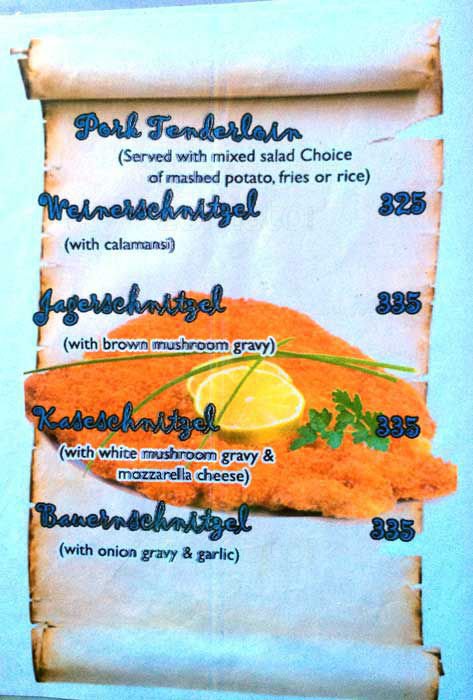 Pork Tenderloin
(Served with mixed salad Choice
of mashed potato, fries or rice)
Weinerschnitzel 325
(with calamansi)
Jagerschnitzel 335
(with brown mushroom gravy)
Kaseschnitzel 335
(with white mushroom gravy &
mozzarella cheese)
Bauernschnitzel 335
(with onion gravy & garlic)